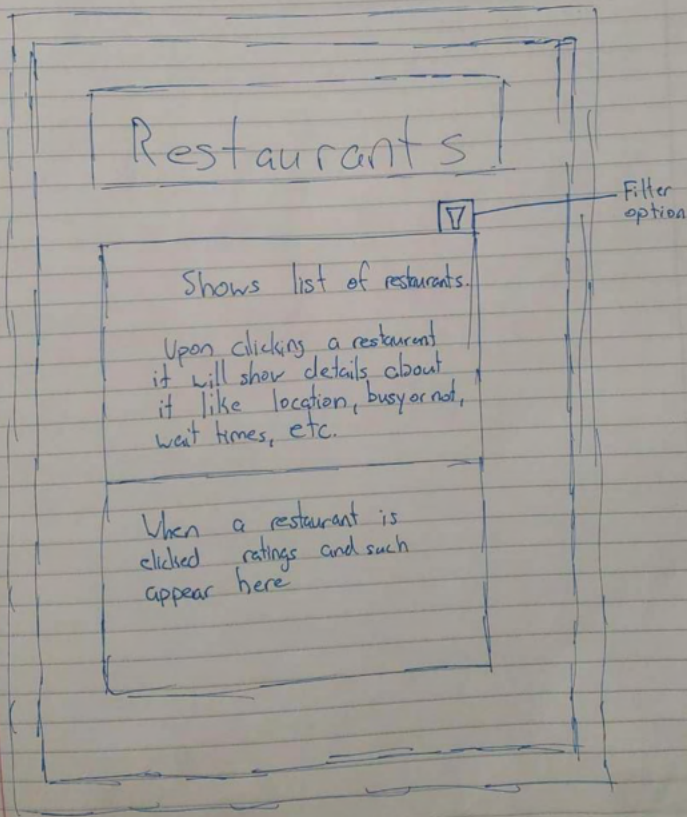 Restaurants
Filter
option
Shows list of restaurants.
Upon clicking a restaurant
it will show details about
it like location, busy or not,
wait times, etc.
When a restaurant is
clicked ratings and such
appear here